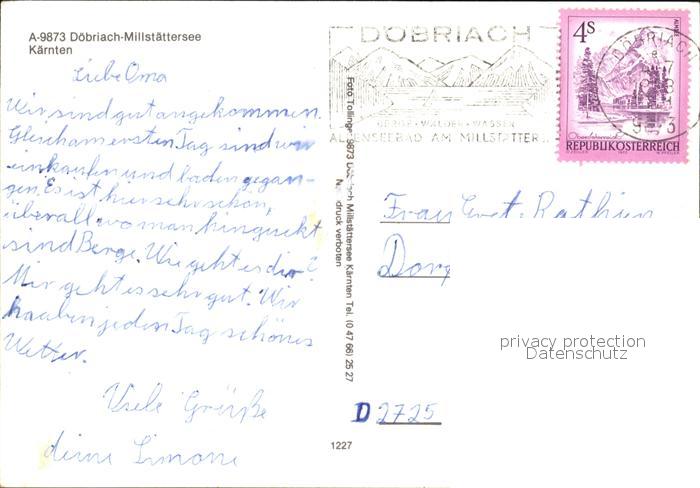 A-9873 Döbriach-Millstättersee
Kärnten
Liebe Oma
Wir sind gut angekommen.
Gleich am ersten Tag sind wir
einkaufen und baden gegan-
gen. Es ist hier sehr schön,
überall wo man hinguckt
sind Berge. Wie geht es dir?
Mir geht es sehr gut. Wir
haben jeden Tag schönes
Wetter.
Viele Grüße
deine Simone
Foto Tollinger 9873 Döbriach Millstättersee Kärnten Tel. (0 47 66) 25 27
Nachdruck verboten
1227
DÖBRIACH
BERGE·WÄLDER·WASSER
AM MILLSTÄTTER
4S
ALMSEE
REPUBLIK ÖSTERREICH
DÖBRIACH
Frau
D 2725
privacy protection
Datenschutz